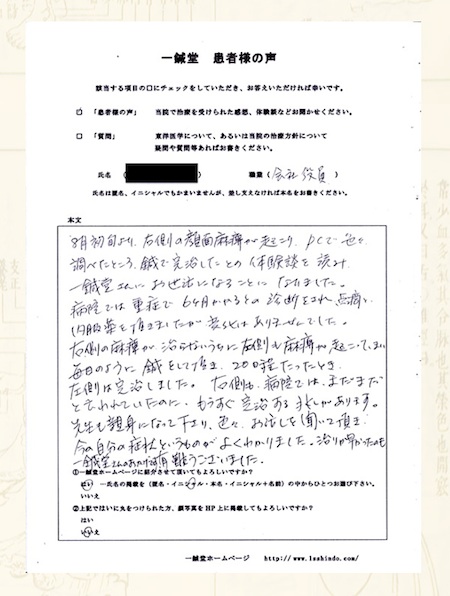 一鍼堂 患者様の声
該当する項目の口にチェックをしていただき、お答えいただければ幸いです。
□ 「患者様の声」 当院で治療を受けられた感想、体験談などお聞かせください。
□ 「質問」 東洋医学について、あるいは当院の治療方針について
疑問や質問等あればお書きください。
氏名 ( ) 職業 ( 会社役員 )
氏名は匿名、イニシャルでもかまいませんが、差し支えなければ本名をお書きください。
本文
8月初旬より、右側の顔面麻痺が起こり、PCで色々
調べたところ、鍼で完治したとの体験談を読み、
一鍼堂さんにお世話になることになりました。
病院では重症で6ヶ月かかるとの診断をされ、点滴、
内服薬を頂きましたが変化はありませんでした。
右側の麻痺が治らないうちに左側も麻痺が起こってしまい
毎日のように鍼をして頂き、20日程たったとき、
左側は完治しました。右側も、病院では、まだまだ
と言われていたのに、もうすぐ完治する兆しがあります。
先生も親身になって下り、色々、お話しを聞いて頂き、
今の自分の症状というものがよくわかりました。治りが早かったのも
一鍼堂さんのおかげ 有難うございました。
①一鍼堂ホームページに紹介させて頂いてもよろしいですか?
はい ―氏名の掲載を(匿名・イニシャル・本名・イニシャル+名前)の中からひとつお選び下さい。
いいえ
②上記ではいに丸をつけられた方、顔写真をHP上に掲載してもよろしいですか?
はい
いいえ
一鍼堂ホームページ http://www.1sshindo.com/